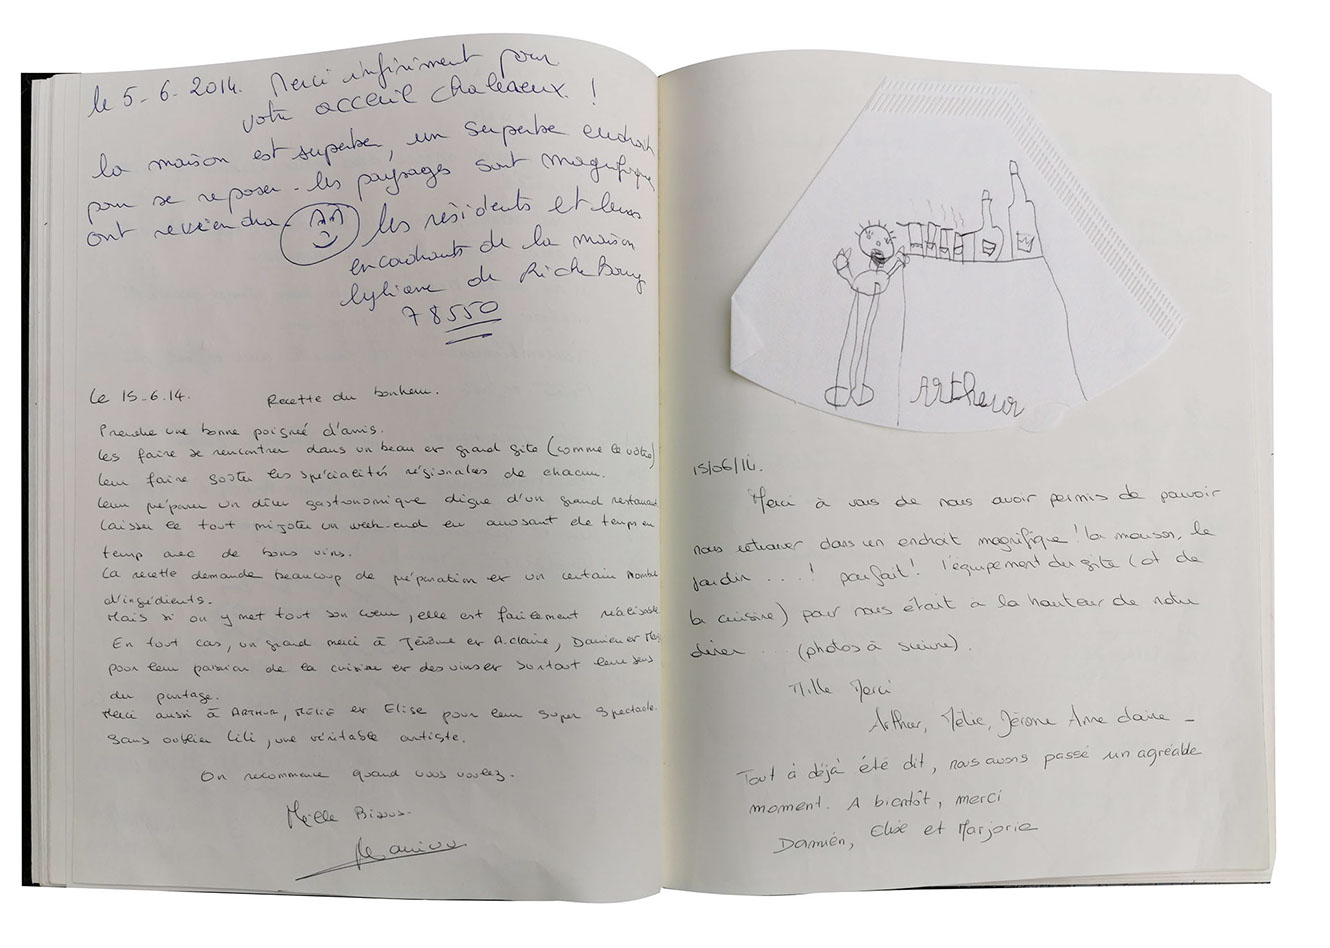 le 5-6-2014. Merci infiniment pour
votre acceuil chaleaeux !
la maison est superbe, un superbe endroit
pour se reposer - les paysages sont magnifique
ont reviendra
les résidents et leurs
encadrants de la maison
Lyliane de RicheBourg
78550
Le 15-6-14. Recette du bonheur.
Prendre une bonne poignée d'amis.
Les faire se rencontrer dans un beau et grand gîte (comme le vôtre)
Leur faire goûter les spécialités régionales de chacun.
Leur préparer un dîner gastronomique digne d'un grand restaurant
Laisser le tout mijoter un week-end en arrosant de temps en
temp avec de bons vins.
La recette demande beaucoup de préparation et un certain nombre
d'ingédients.
Mais si on y met tout son coeur, elle est facilement réalisable
En tout cas, un grand merci à Jérôme et A.Claire, Damien et
pour leur passion de la cuisine et des vins et surtout leur sens
du partage.
Merci aussi à ARTHUR, MÉLIE et Elise pour leur super spectacle.
Sans oublier Lili, une véritable artiste.
On recommence quand vous voulez.
Mille Bisous.
Artheur
15/06/14.
Merci à vous de nous avoir permis de pouvoir
nous retrouver dans un endroit magnifique ! la maison, le
jardin ...! parfait ! l'équipement du gîte (et de
la cuisine) pour nous était à la hauteur de notre
dîner ... (photos à suivre).
Mille Merci
Arthur, Mélie, Jérôme Anne claire -
Tout à déjà été dit, nous avons passé un agréable
moment. A bientôt, merci
Damien, Elise et Marjorie